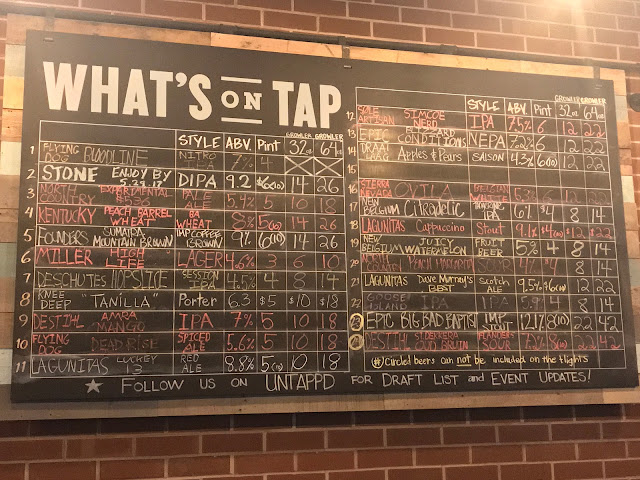 WHAT'S ON TAP
STYLE ABV. Pint GROWLER 32oz GROWLER 64oz
1 FLYING DOG BLOODLINE NITRO 7% 4
2 STONE ENJOY BY DIPA 9.2 14 26
3 NORTH COUNTRY EXPERIMENTAL PALE ALE 5.4% 5 10 18
4 KENTUCKY PEACH BARREL WHEAT BA WHEAT 8% 14 26
5 FOUNDERS SUMATRA MOUNTAIN BROWN IMP COFFEE BROWN 9% 14 26
6 MILLER HIGH LIFE LAGER 4.6% 3 6 10
7 DESCHUTES HOP SLICE SESSION IPA 4.5% 4 8 14
8 KNEE DEEP "TANILLA" Porter 6.3 $5 $10 $18
9 DESTIHL AMRA MANGO IPA 7% 5 10 18
10 FLYING DOG DEAD RISE SPICED ALE 5.6% 5 10 18
11 LAGUNITAS LUCKEY 13 RED ALE 8.8% 10 18
STYLE ABV. Pint GROWLER 32oz GROWLER 64oz
12 ARTISAN SIMCOE NERD IPA 7.5% 6 12 22
13 EPIC CONDITIONS NEPA 7.2% 6 12 22
14 Apples & Pears SAISON 4.3% 12 22
16 SIERRA NEVADA OVILA 12 22
17 NEW BELGIUM Citradelic IPA 8 14
18 LAGUNITAS Cappuccino Stout 9.1% $12 $22
19 NEW BELGIUM JUICY WATERMELON FRUIT BEER 5% 4 8 14
20 NORTH COUNTRY 8 14
21 LAGUNITAS Dave Murray's BEST Scotch 9.5% 12 22
22 GOOSE IPA 5.9% 4 8 14
EPIC BIG BAD BAPTIST IMP STOUT 22 42
DESTIHL FLANDERS SOUR 22 42
(#) Circled beers can not be included on the flights
★ FOLLOW US ON UNTAPPD FOR DRAFT LIST AND EVENT UPDATES!